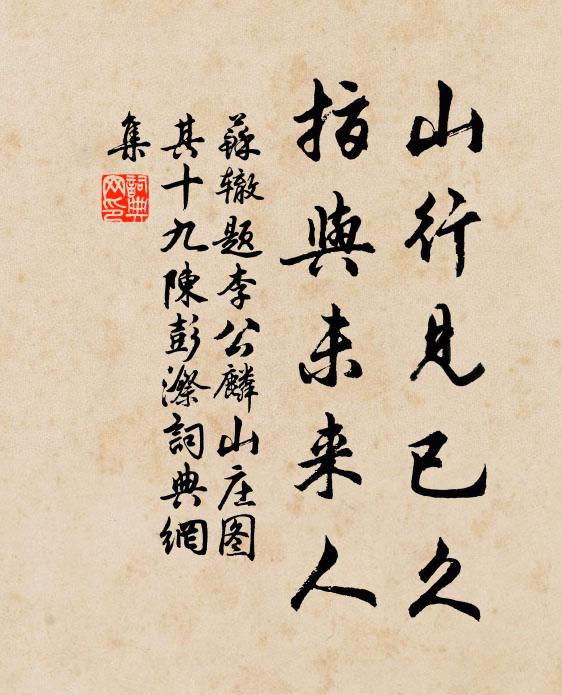 山行見已久
指與未来人
蘇辙题李公麟山庄图
其十九陳彭漈詞典網
集
詞典网印